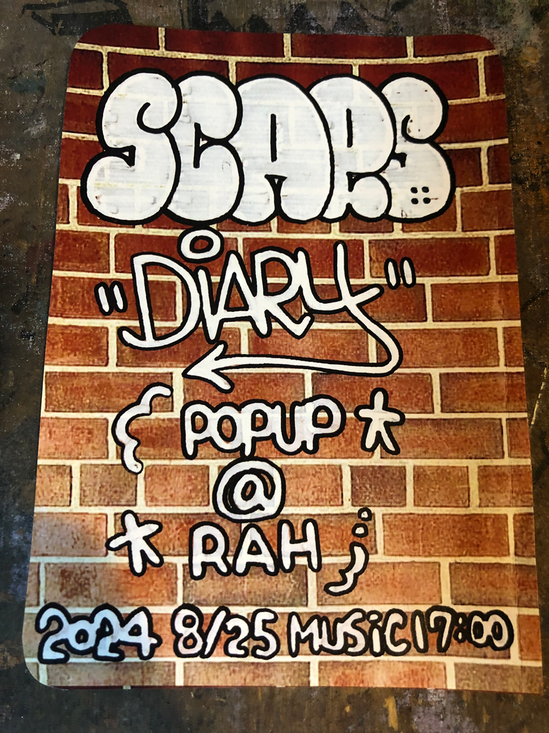 SCARS
"DiARY"
{ POPUP *
@
* RAH ;
2024 8/25 MUSiC 17:00